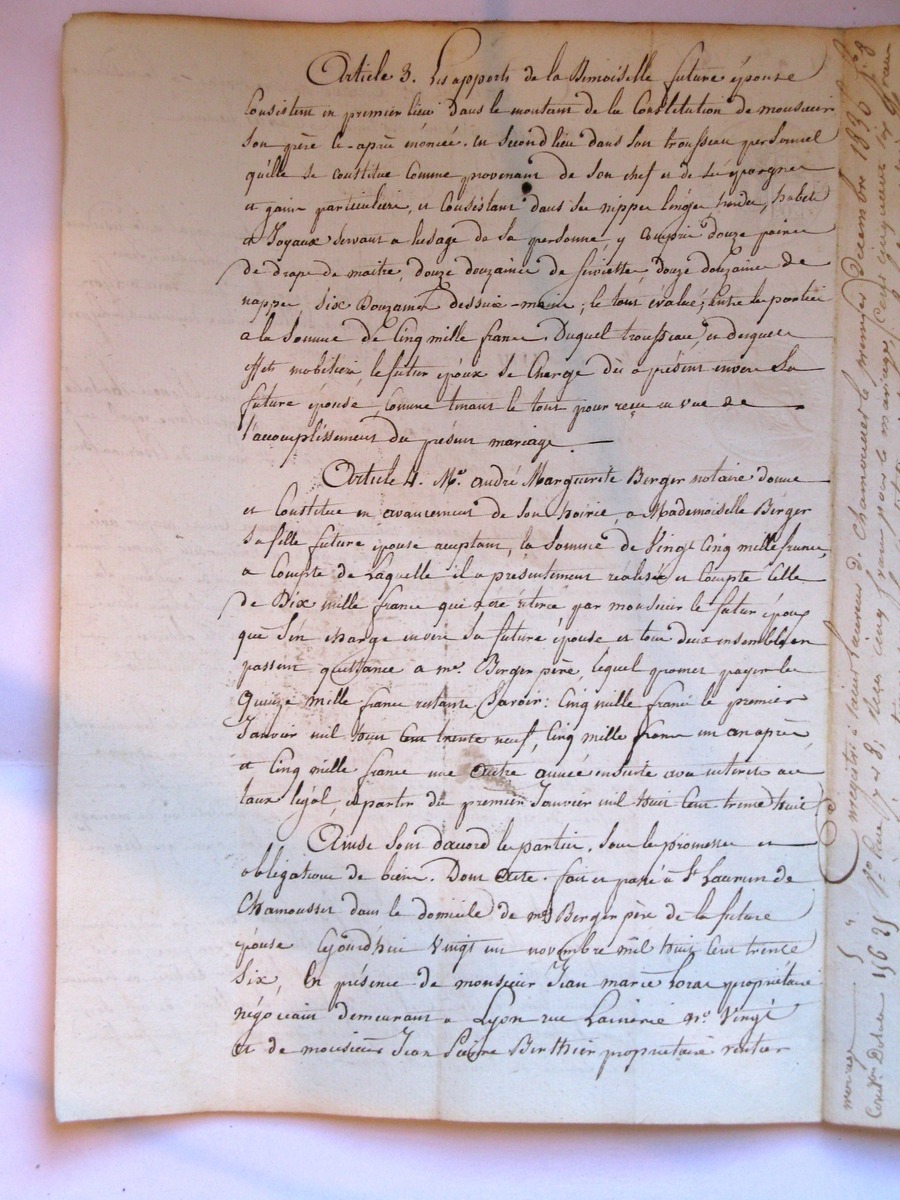 Article 3. Les apports de la Demoiselle future épouse
Consistent en premier lieu dans le montant de la Constitution de monsieur
son père ci-après énoncée. en second lieu dans son trousseau personnel
qu'elle se constitue comme provenant de son chef et de ses épargnes
et gains particuliers, et Consistant dans ses nippes linges hardes, habits
et Joyaux servant a lusage de sa personne, y Compris douze paires
de draps de maitre, douze douzaines de serviettes, douze douzaines de
nappes, six Douzaines dessuie-mains; le tout évalué, entre les parties
a la Somme de Cinq mille francs. Duquel trousseau, et desquels
effets mobiliers, le futur époux se Charge dès a présent envers Sa
future épouse, Comme tenant le tout pour reçu en vue de
l'accomplissement du présent mariage.
Article 4. Mr. andré Marguerite Berger notaire donne
et Constitue en avancement de son hoirie, a Mademoiselle Berger
sa fille future épouse acceptant, la Somme de Vingt Cinq mille francs,
a Compte de Laquelle il a présentement réalisé et Compté Celle
de Dix mille francs qui a été retirée par monsieur le futur époux
que s'en charge envers sa future épouse et tous deux ensemble en
passent quittance a mr. Berger père, lequel promet payer les
Quinze mille francs restants, Savoir: Cinq mille francs le premier
Janvier mil huit Cent trente neuf, Cinq mille francs un an après
et Cinq mille francs une autre année ensuite avec interets au
taux légal, a partir du premier Janvier mil huit Cent trente huit
Ainsi sont daccord les parties. Sous les promesses et
obligations de biens. Dont Acte. fait et passé à St. Laurent de
Chamousset dans le domicile de mr. Berger père de la future
épouse Cejourd'hui Vingt un novembre mil huit Cent trente
Six, En présence de monsieur Jean marie Loras propriétaire
négociant demeurant a Lyon rue Lainerie no. Vingt
et de monsieur Jean Pierre Berthier propriétaire rentier
Enregistré à saint Laurent D. Chamousset le premier Décembre 1836 fo. 8